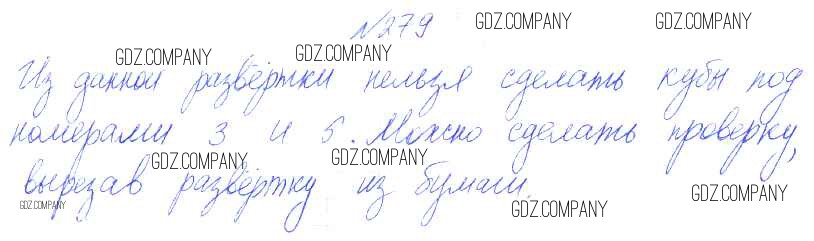 №279
Из данной развёртки нельзя сделать кубы под
номерами 3 и 5. Можно сделать проверку,
вырезав развёртку из бумаги.
GDZ.COMPANY
GDZ.COMPANY
GDZ.COMPANY
GDZ.COMPANY
GDZ.COMPANY
GDZ.COMPANY
GDZ.COMPANY
GDZ.COMPANY
GDZ.COMPANY